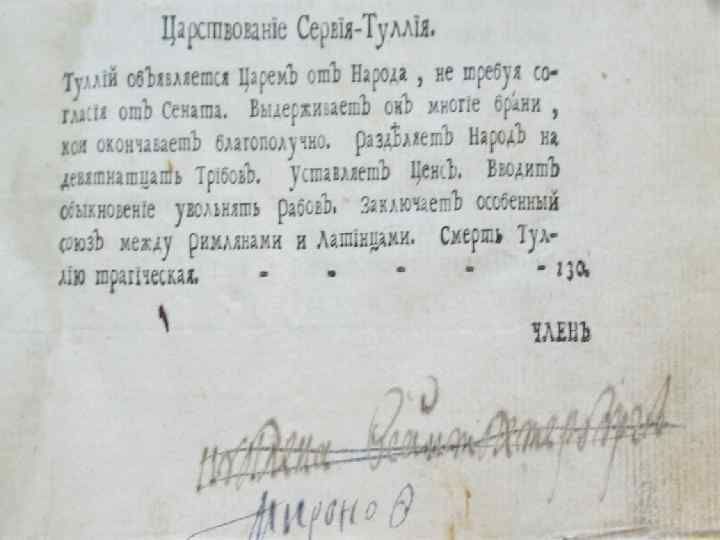 Царствованіе Сервія-Туллія.
Туллій объявляется Царемъ отъ Народа, не требуя со-
гласія отъ Сената. Выдерживаетъ онъ многіе бра́ни,
кои окончаваетъ благополучно. раздѣляетъ Народъ на
девятнатцать Трібовъ. уставляетъ Ценсъ. Вводитъ
обыкновеніе увольнять рабовъ. Заключаетъ особенный
союзъ между римлянами и Латінцами. Смерть Тул-
лію трагіческая. - - - - - 130.
ЧЛЕНЪ
Мироно